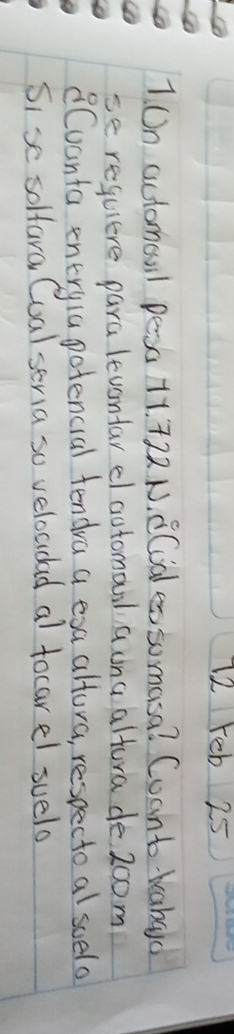 12 Feb 25
1. Un automovil pesa 11.722 N. ¿Cuál es su masa? Cuanto trabajo
se requiere para levantar el automovil a una altura de 200m
¿Cuanta energia potencial tendra a esa altura, respecto al suelo
Si se soltara Cual seria su velocidad al tocar el suelo